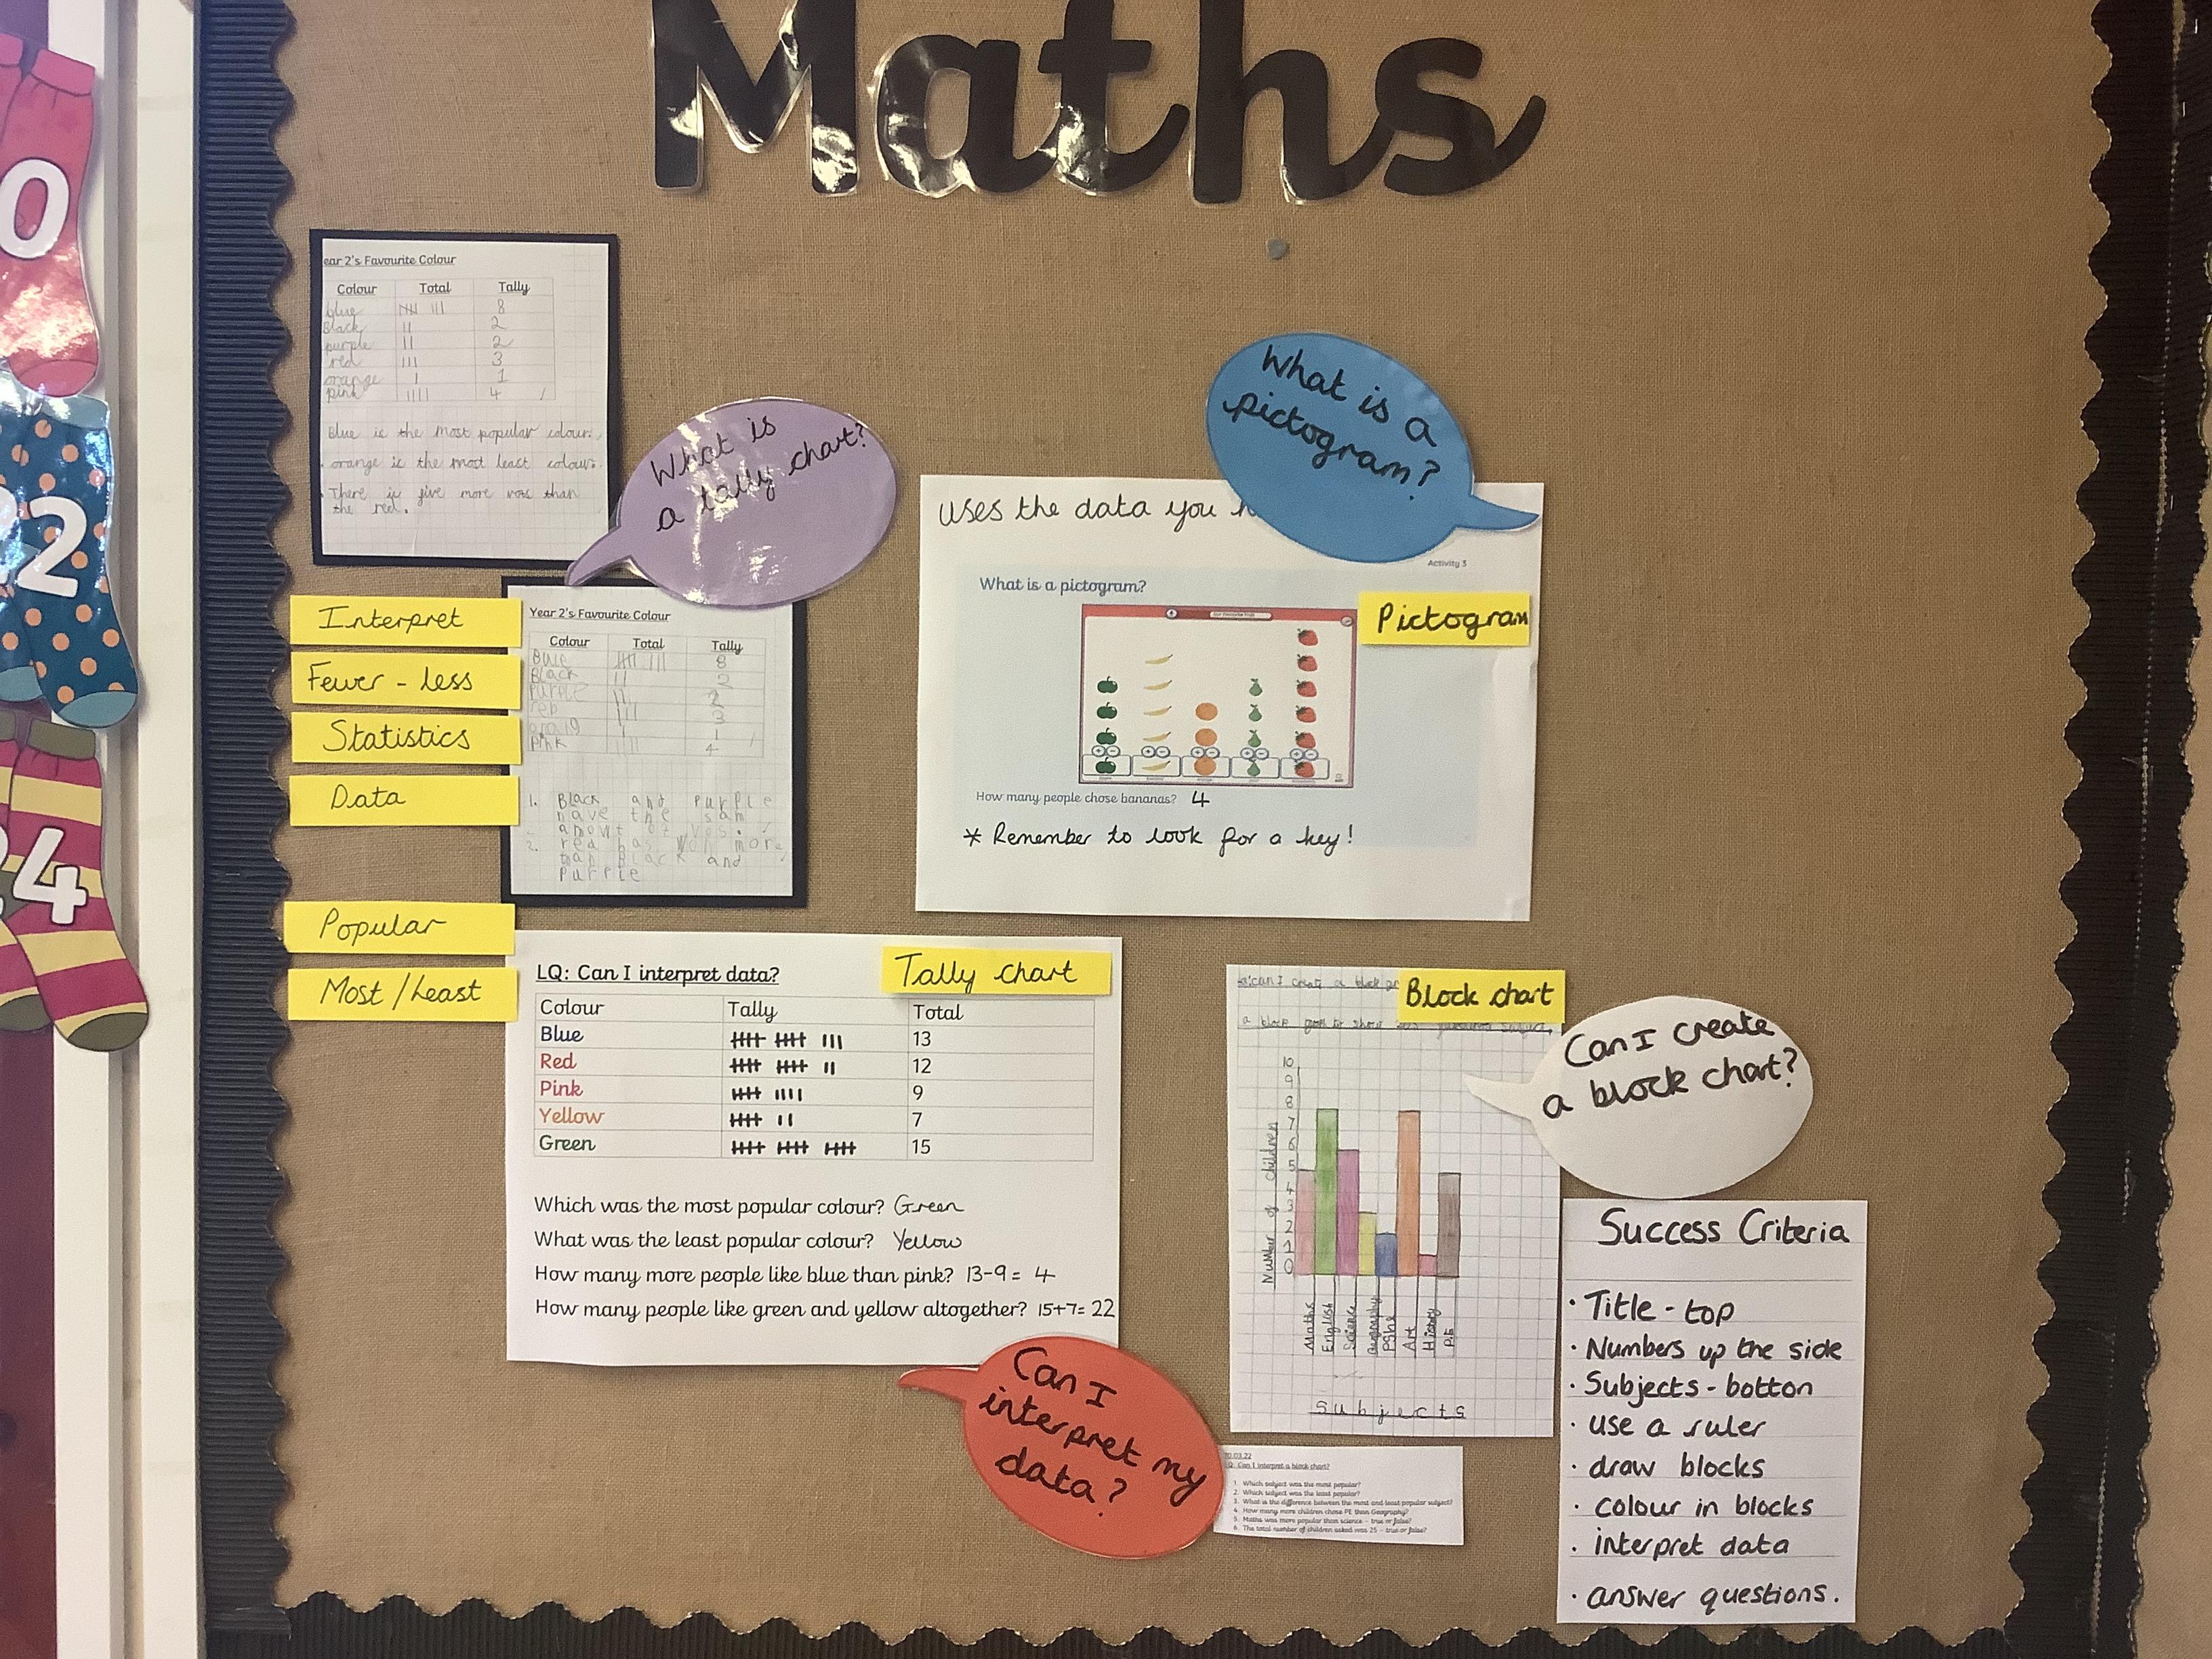 Maths
0
2
4
ear 2's Favourite Colour
Colour Total Tally
blue 8
Black 2
purple 2
red 3
orange 1
pink 4
Blue is the most popular colour.
orange is the most least colour.
There is five more vos than
the red.
What is
a tally chart?
Year 2's Favourite Colour
Colour Total Tally
Blue 8
Black 2
Purple 2
3
1
Pink 4
1. Black and Purple
have the sam
amout of
2. red has more
than Black and
Purple
Interpret
Fewer - less
Statistics
Data
Popular
Most/Least
What is a
pictogram?
Uses the data you
Activity 3
What is a pictogram?
Pictogram
How many people chose bananas? 4
* Remember to look for a key!
LQ: Can I interpret data?
Tally chart
Colour Tally Total
Blue 13
Red 12
Pink 9
Yellow 7
Green 15
Which was the most popular colour? Green
What was the least popular colour? Yellow
How many more people like blue than pink? 13-9= 4
How many people like green and yellow altogether? 15+7= 22
Can I
interpret my
data?
can I create a block
Block chart
a block to show
10
9
8
7
6
5
4
3
2
1
0
Number of children
Maths
English
Science
Geography
PSHE
Art
History
P.E
Subjects
Can I create
a block chart?
0.03.22
Q: Can I interpret a block chart?
1. Which subject was the most popular?
2. Which subject was the least popular?
3. What is the difference between the most and least popular subject?
4. How many more children chose PE than Geography?
5. Maths was more popular than science - true or false?
6. The total number of children asked was 25 - true or false?
Success Criteria
· Title - top
· Numbers up the side
· Subjects - botton
· use a ruler
· draw blocks
· colour in blocks
· interpret data
· answer questions.